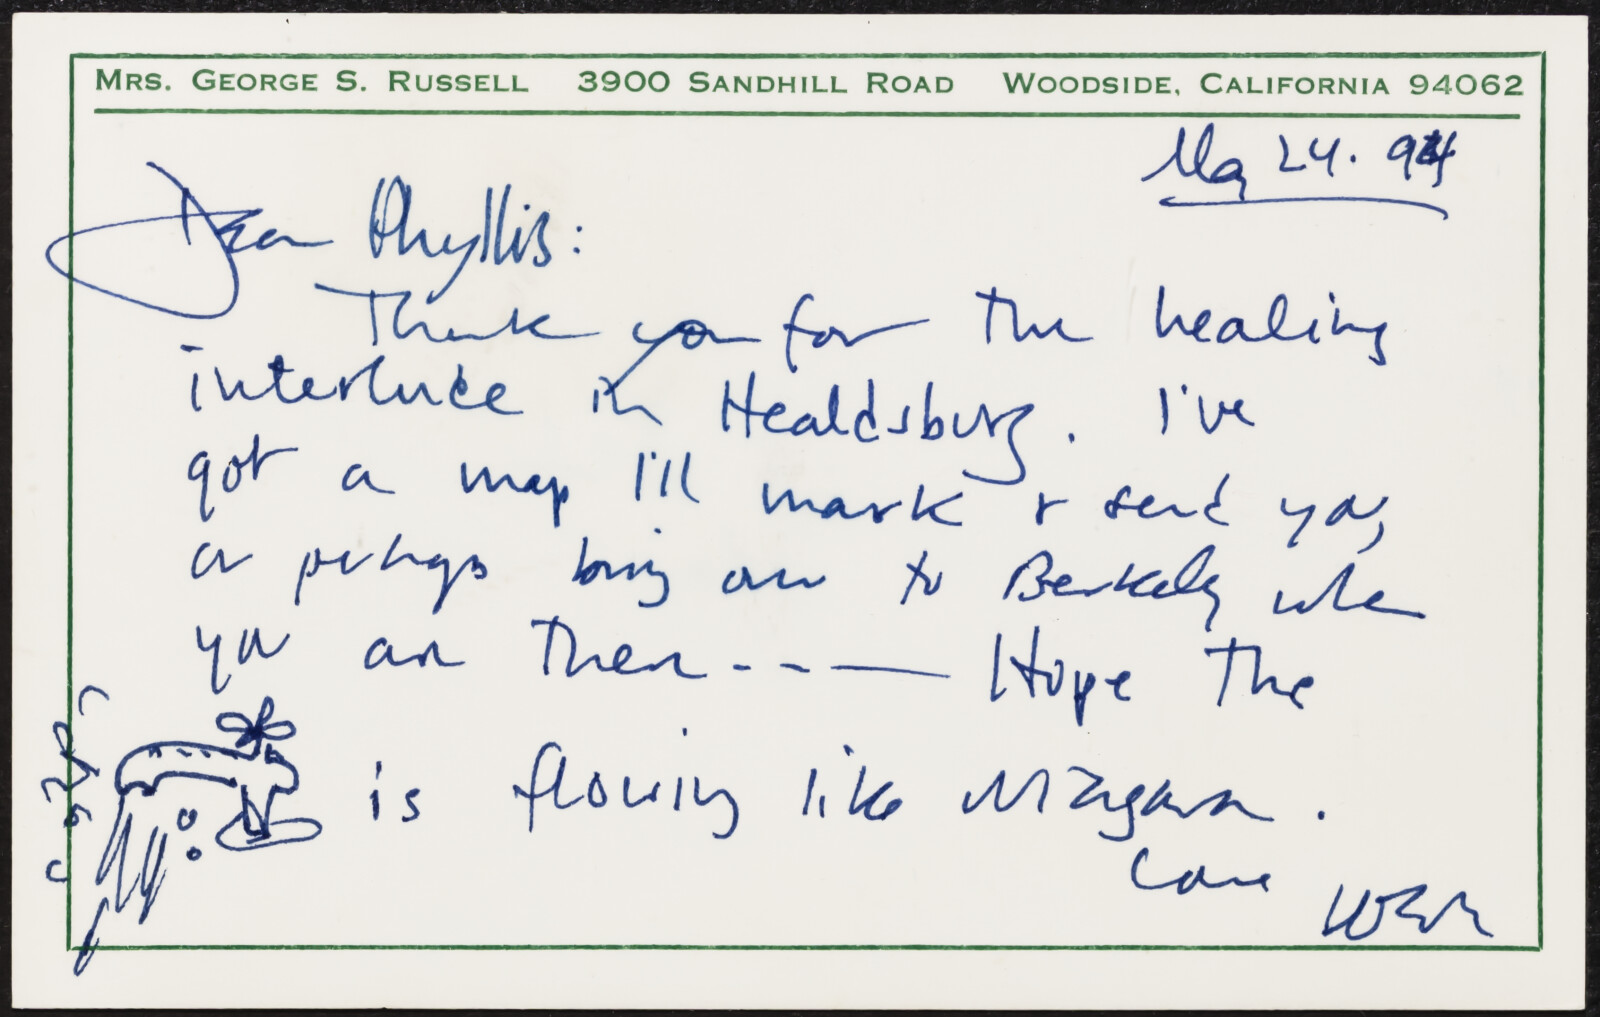 MRS. GEORGE S. RUSSELL 3900 SANDHILL ROAD WOODSIDE, CALIFORNIA 94062
May 24. 94
Dear Phyllis:
Thank you for the healing
interlude in Healdsburg. I've
got a map I'll mark & send you,
or perhaps bring over to Berkeley when
you are there --— Hope the
is flowing like Niagara.
Love